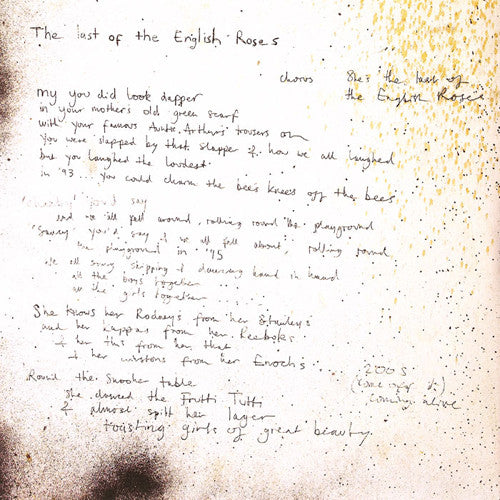 The last of the English Roses
chorus She's the last of
the English Roses
my you did look dapper
in your mother's old green scarf
with your famous Auntie Arthur's trousers on
You were slapped by that slapper & how we all laughed
but you laughed the loudest.
in '93. You could charm the bees knees off the bees
you'd say
and we all fell around, rolling round the playground
you'd say & we all fell about, rolling round
the playground in '95
We all sang, skipping & dancing hand in hand
all the boys together
all the girls together
She knows her Rodneys from her Stanleys
and her Kappas from her Reeboks
& her this from her that
& her winstons from her Enochs
Round the snooker table
she dawsed the Frutti Tutti
& almost spilt her lager
toasting girls of great beauty
2005
(come off it)
coming alive